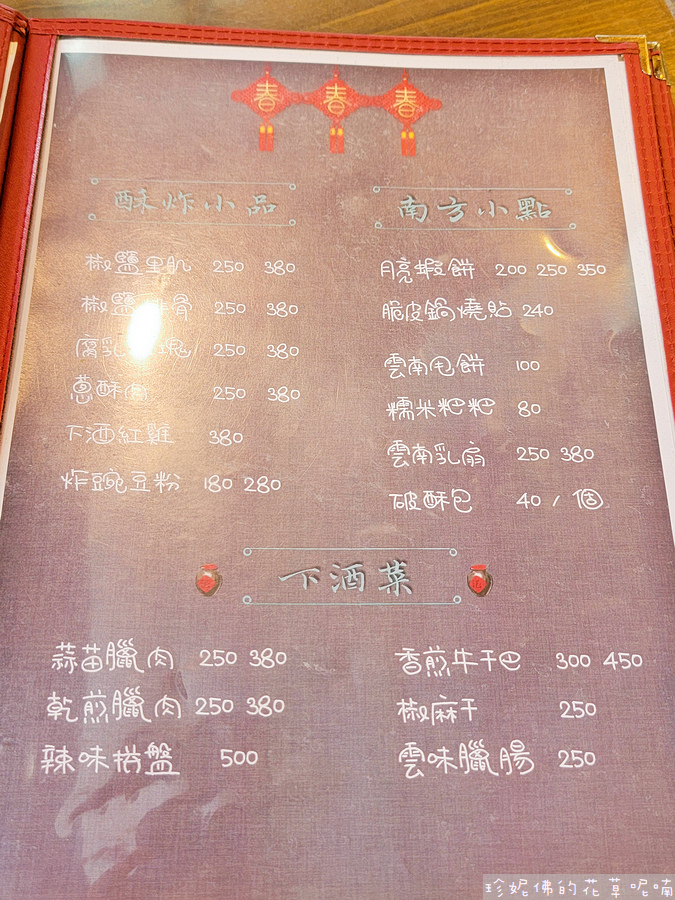 春 春 春
酥炸小品
椒鹽里肌 250 380
椒鹽排骨 250 380
腐乳 塊 250 380
蔥酥肉 250 380
下酒紅雞 380
炸豌豆粉 180 280
南方小點
月亮蝦餅 200 250 350
脆皮鍋燒貼 240
雲南甩餅 100
糯米粑粑 80
雲南乳扇 250 380
破酥包 40 / 個
下酒菜
蒜苗臘肉 250 380
乾煎臘肉 250 380
辣味拼盤 500
香煎牛干巴 300 450
椒麻干 250
雲味臘腸 250
珍妮佛的花草呢喃